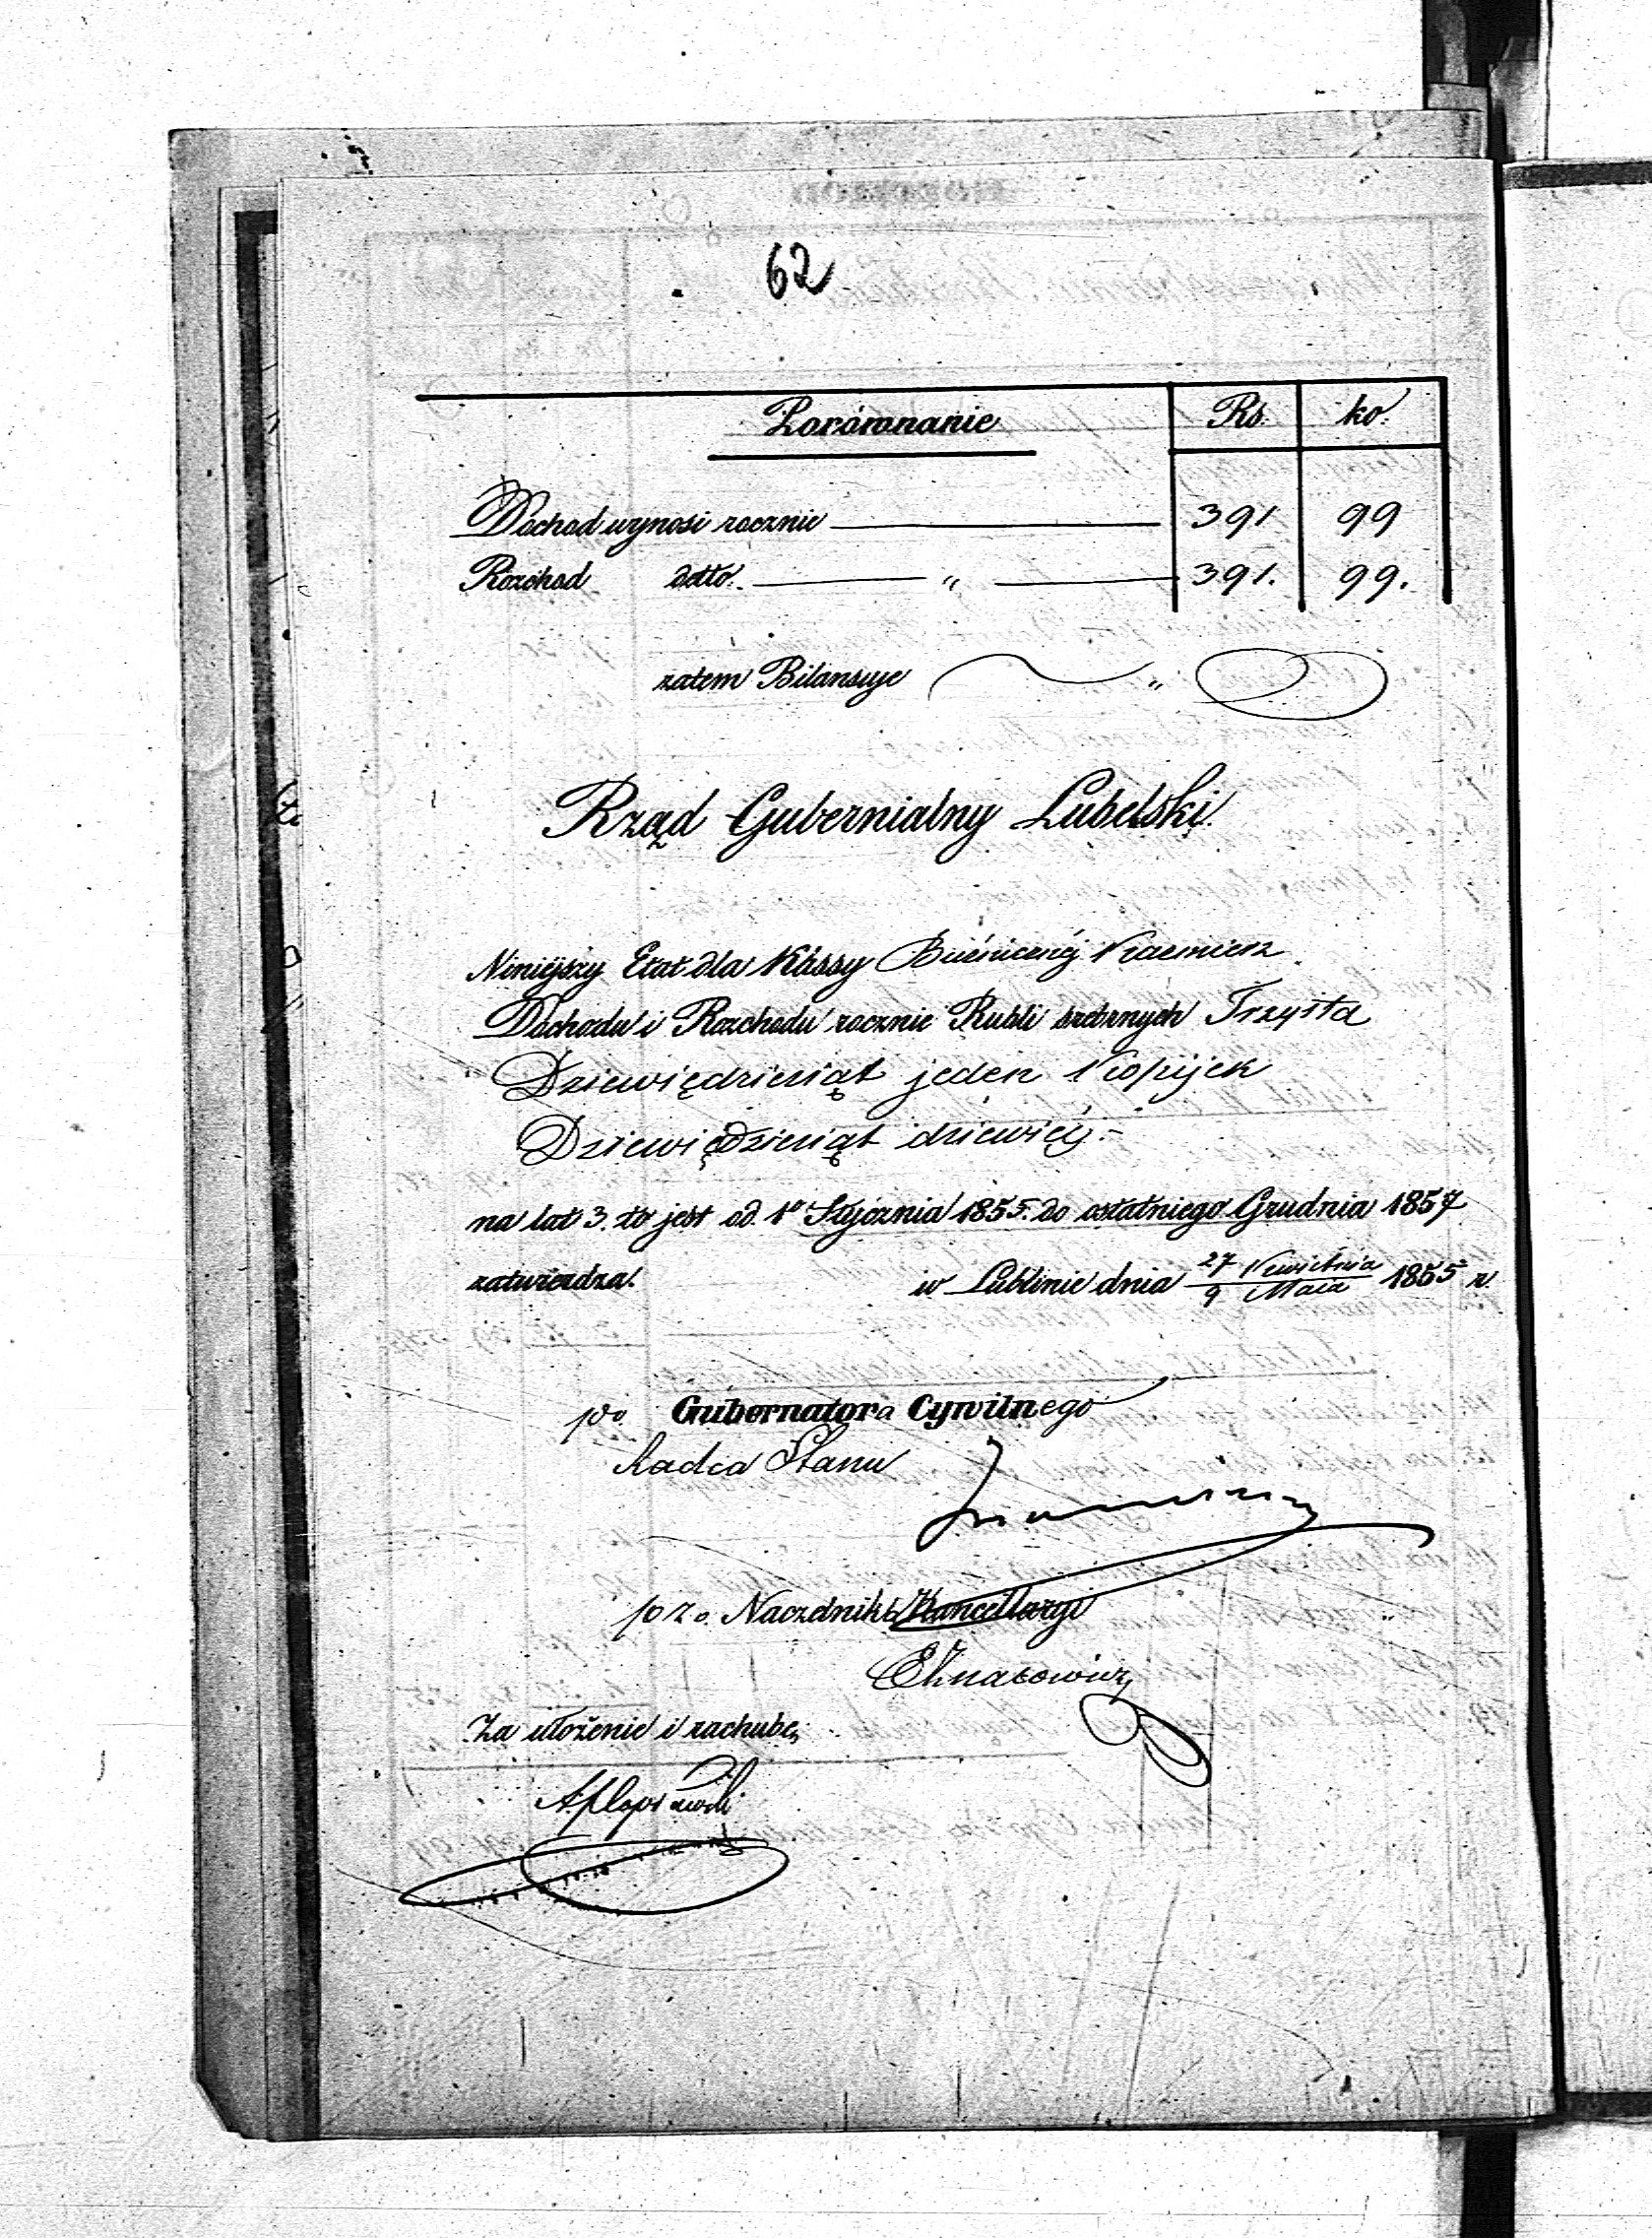 62
Porównanie Rs. ko.
Dochod wynosi rocznie 391 99
Rozchod detto. " 391. 99.
zatem Bilansuje "
Rząd Gubernialny Lubelski.
Niniejszy Etat dla Kassy Bóżnicznéj Kazmierz
Dochodu i Rozchodu rocznie Rubli srebrnych Trzysta
Dziewiędziesiąt jeden Kopijek
Dziewiędziesiąt dziewięć.
na lat 3. to jest od 1º Stycznia 1855. do ostatniego Grudnia 1857
zatwierdza. w Lublinie dnia 27 Kwietnia / 9 Maia 1855 r.
po. Gubernatora Cywilnego
Radca Stanu
p. z o. Naczelnika Kancellaryi
Za ułożenie i rachubę